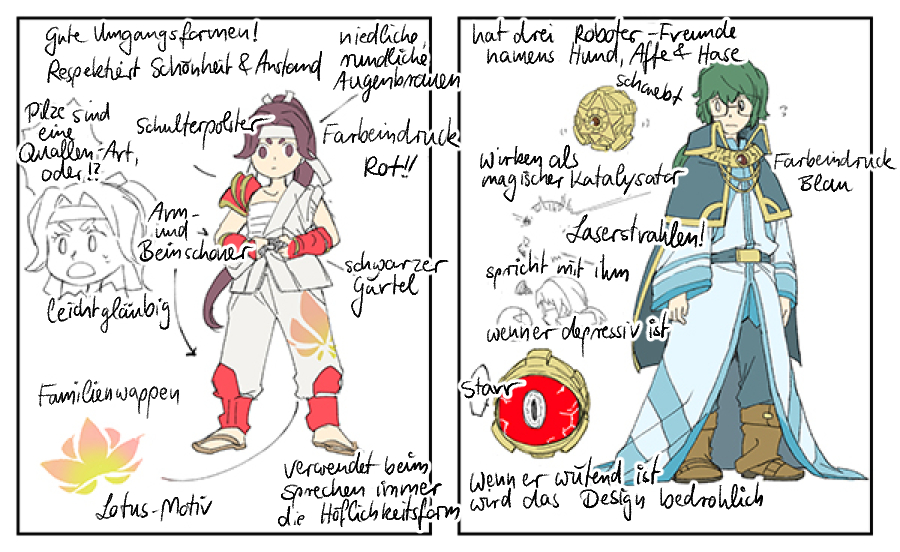 Gute Umgangsformen!
Respektiert Schönheit & Anstand
niedliche,
rundliche
Augenbrauen
Pilze sind
eine
Quallen-Art,
oder!?
Schulterpolster
Farbeindruck
Rot!!
Arm-
und
Beinschoner
leichtgläubig
schwarzer
Gürtel
Familienwappen
Lotus-Motiv
verwendet beim
Sprechen immer
die Höflichkeitsform
hat drei Roboter-Freunde
namens Hund, Affe & Hase
schwebt
Wirken als
magischer Katalysator
Farbeindruck
Blau
Laserstrahlen!
spricht mit ihm
wenn er depressiv ist
Starr
Wenn er wütend ist
wird das Design bedrohlich